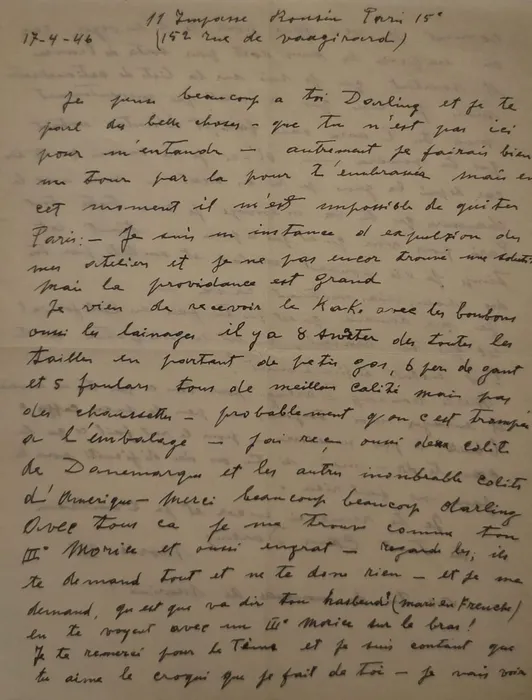 11 Impasse Ronsin Paris 15e
17-4-46 (152 rue de vaugirard)
Je pense beaucoup a toi Darling et je te
parl des belle choses - que tu n'est pas ici
pour m'entandr - autrement je fairais bien
un tour par la pour t'embrasser mais en
cet moment il m'est impossible de quiter
Paris: - Je suis en instance d'expulsion des
mes ateliers et je ne pas encor trouvé une
mais la providance est grand
Je vien de recevoir le Kako avec les bonbons
oussi les lainages il y a 8 sweter des toutes les
tailles en partant de petis gos, 6 per de gant
et 5 foulars tous de meillau calité mais pas
des chaussettes - probablement qu'on c'est trampé
a l'embalage - j'ai reçu oussi deux colits
de Danemarque et les autres inombrable colits
d'Amerique - Merci beaucoup beaucoup darling
Avec tous ca je me trouve comme ton
IIIe Morice et oussi engrat - regard les, ils
te demand tout et ne te done rien - et je me
demand, qu est que va dir ton hasbend! (mari en Frenche)
en te voyent avec un IIIe Morice sur le bras!
Je te remerci pour le Time et je suis contant que
tu aime le croqui que je fait de toi - je vais voir